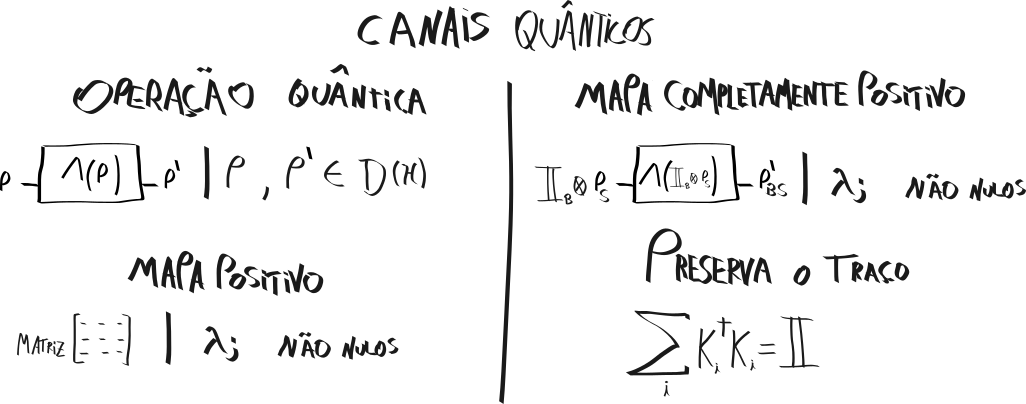 CANAIS QUÂNTICOS
OPERAÇÃO QUÂNTICA
ρ Λ(ρ) ρ' | ρ, ρ' ∈ D(ℋ)
MAPA POSITIVO
MATRIZ [ ] | λj NÃO NULOS
MAPA COMPLETAMENTE POSITIVO
𝕀_B ⊗ ρ_S Λ(𝕀_B ⊗ ρ_S) ρ'_BS | λj NÃO NULOS
PRESERVA O TRAÇO
∑_i K_i^† K_i = 𝕀